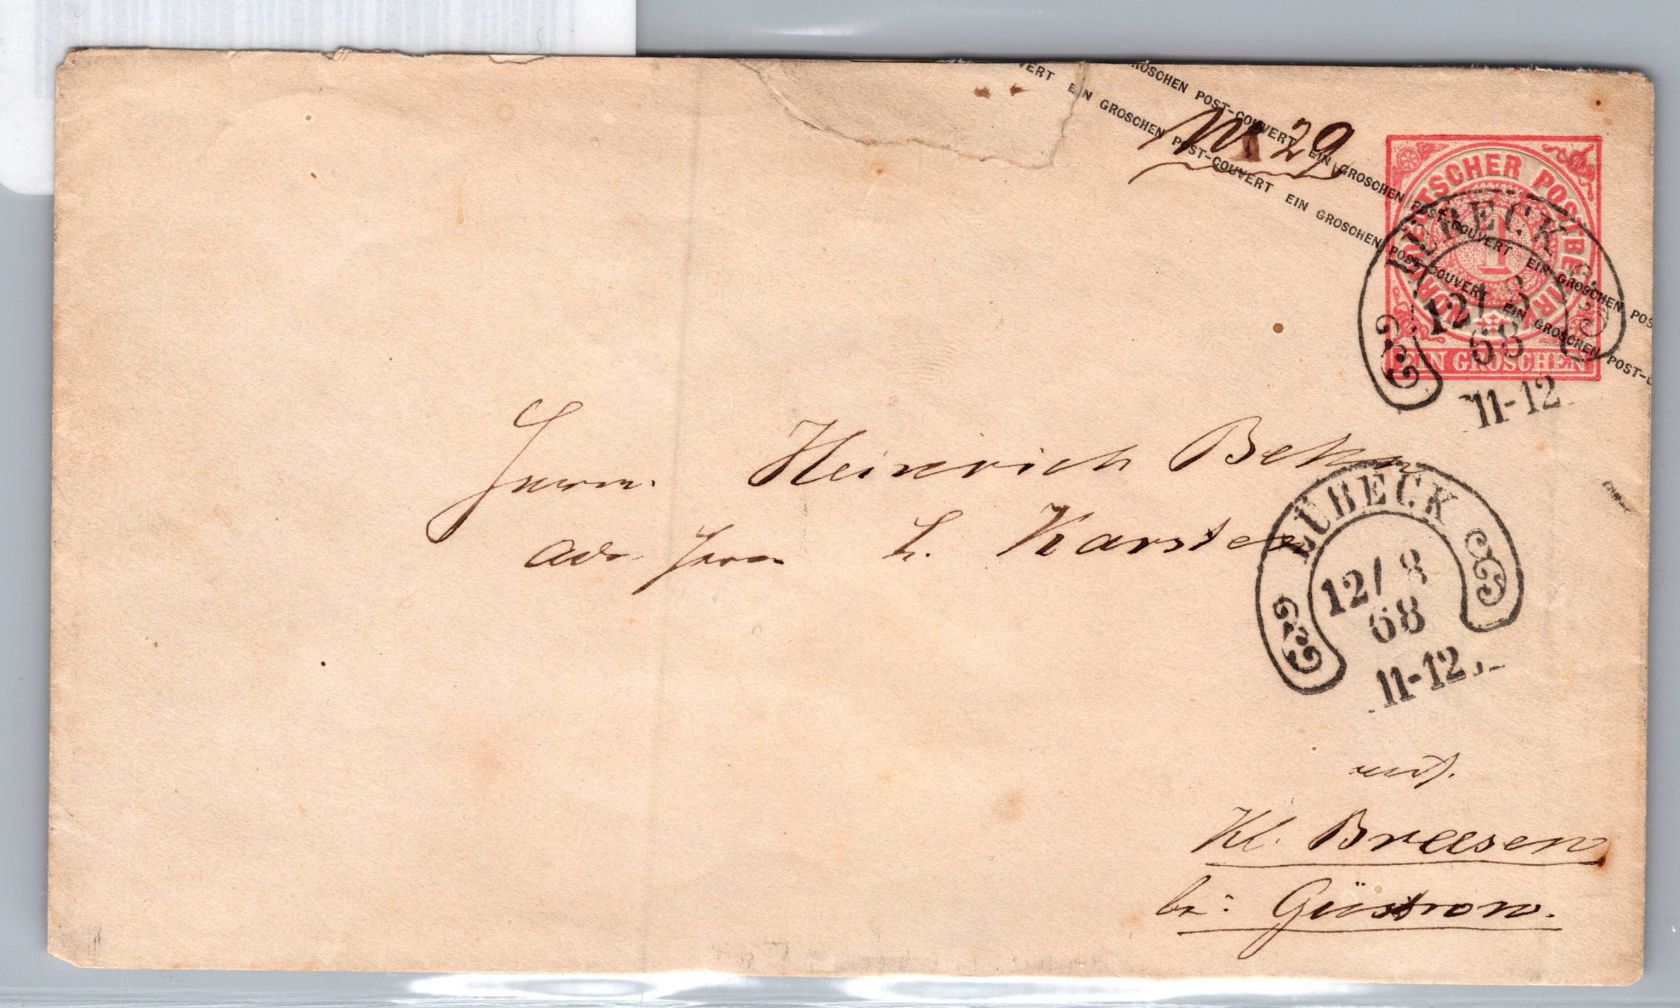 EIN GROSCHEN POST-COUVERT EIN GROSCHEN POST-COUVERT EIN GROSCHEN
EIN GROSCHEN POST-COUVERT EIN GROSCHEN POST-COUVERT EIN GROSCHEN
No 29
NORDDEUTSCHER POSTBEZIRK
1
EIN GROSCHEN
LÜBECK
12/ 8
68
11-12
Herrn Heinrich Behn
adr. Herrn L. Karsten
LÜBECK
12/ 8
68
11-12
auf
Kl. Breesen
bei Güstrow.